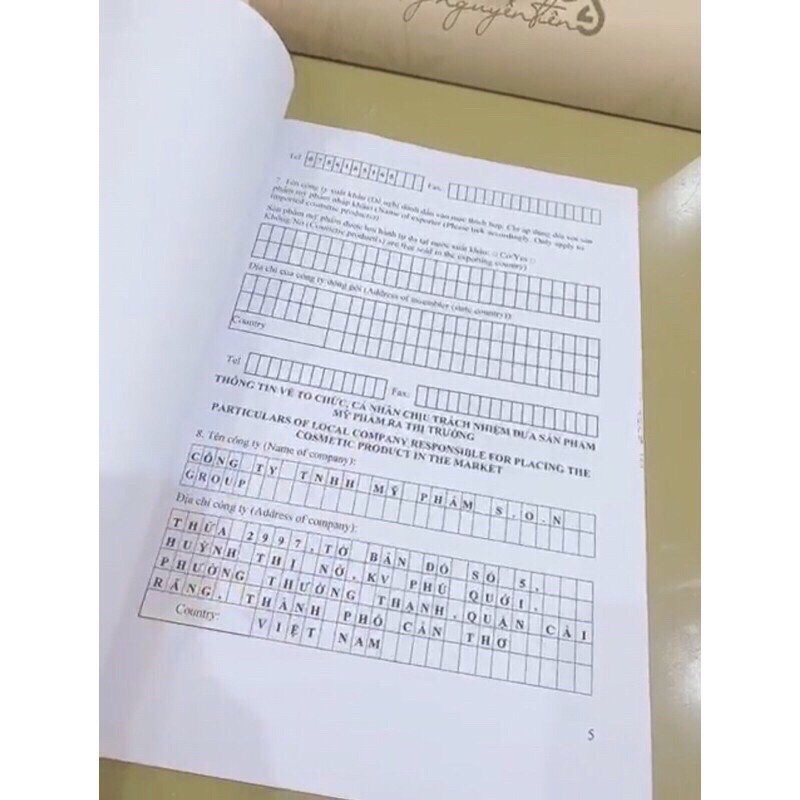 nguyên
Tel
Fax:
7. Tên công ty xuất khẩu (Đề nghị đánh dấu vào mục thích hợp. Chỉ áp dụng đối với sản
phẩm mỹ phẩm nhập khẩu) (Name of exporter (Please tick accordingly. Only apply to
imported cosmetic products))
Sản phẩm mỹ phẩm được lưu hành tự do tại nước xuất khẩu: □ Có/Yes □
Không/No (Cosmetic product(s) are free sold in the exporting country)
Địa chỉ của công ty đóng gói (Address of assembler (state country))
Country
Tel
Fax:
THÔNG TIN VỀ TỔ CHỨC, CÁ NHÂN CHỊU TRÁCH NHIỆM ĐƯA SẢN PHẨM
MỸ PHẨM RA THỊ TRƯỜNG
PARTICULARS OF LOCAL COMPANY RESPONSIBLE FOR PLACING THE
COSMETIC PRODUCT IN THE MARKET
8. Tên công ty (Name of company):
CÔNG TY TNHH MỸ PHẨM S.O.N
GROUP
Địa chỉ công ty (Address of company):
THỬA 2997, TỜ BẢN ĐỒ SỐ 5,
HUỲNH THỊ NỞ, KV PHÚ QUỚI,
PHƯỜNG THƯỜNG THẠNH, QUẬN CÁI
RĂNG, THÀNH PHỐ CẦN THƠ
Country:
VIỆT NAM
5